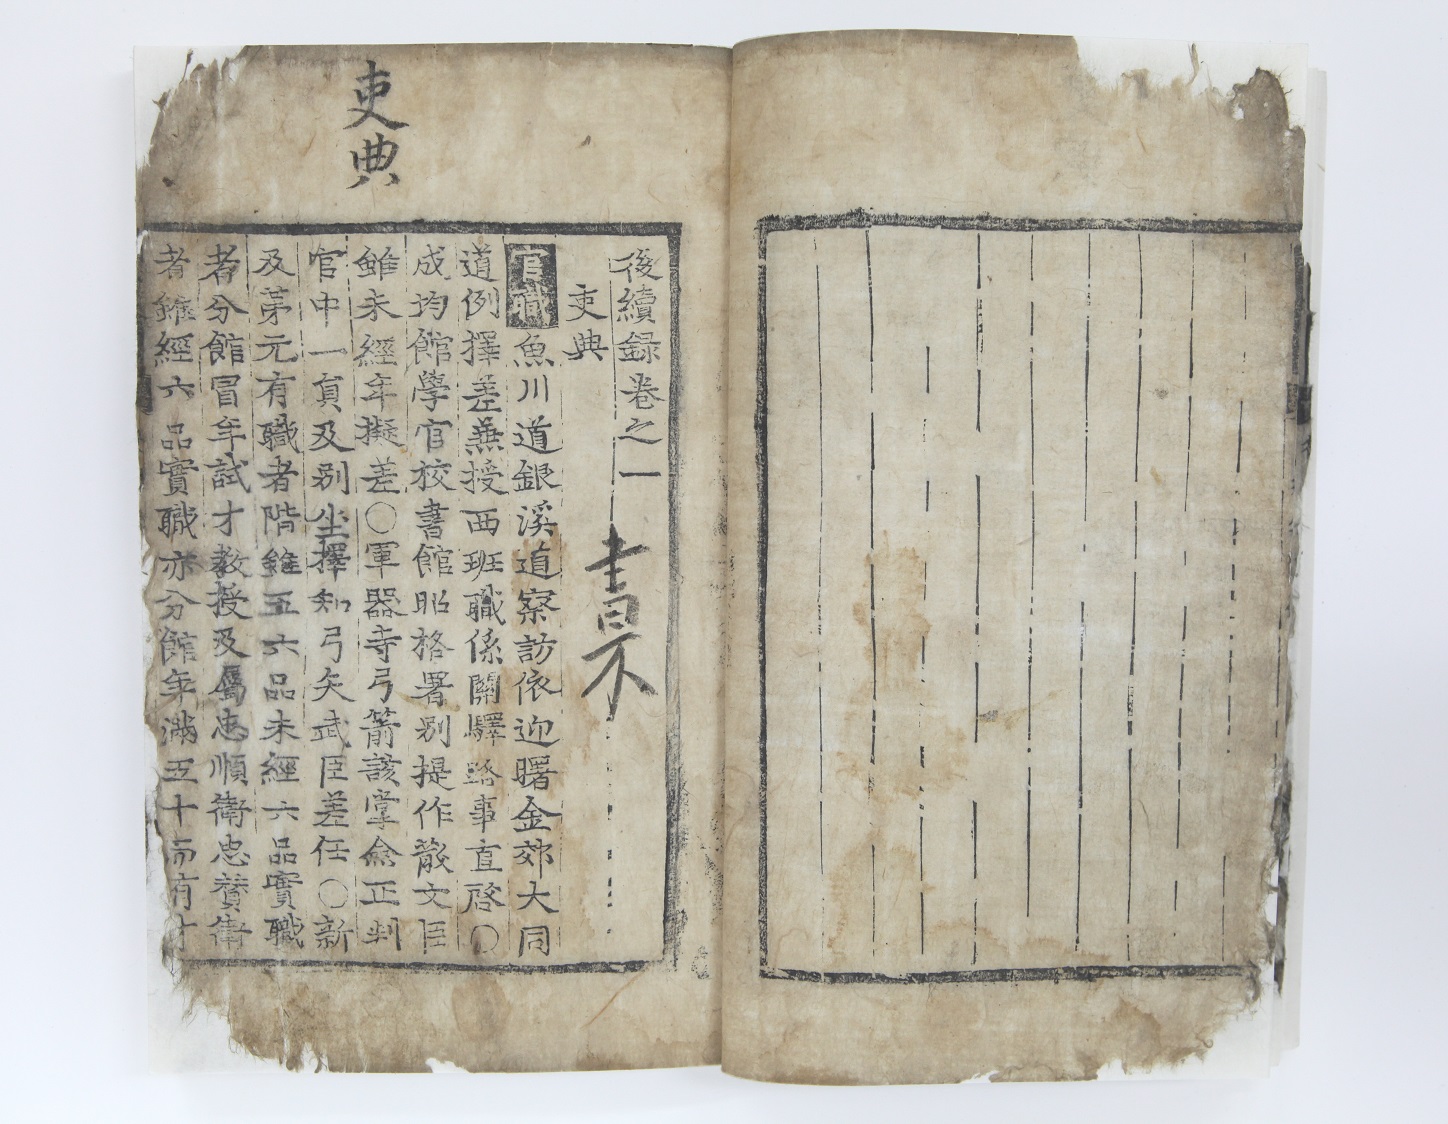 吏典
後續錄卷之一
吏典
官職魚川道銀溪道察訪依迎曙金郊大同
道例擇差兼授西班職係關驛路事直啓〇
成均館學官校書館昭格署別提作散文臣
雖未經年擬差〇軍器寺弓箭該掌僉正判
官中一員及別坐擇知弓矢武臣差任〇新
及第元有職者階雖五六品未經六品實職
者分館冒年試才敎授及屬忠順衛忠贊衛
者雖經六品實職亦分館年滿五十而有才